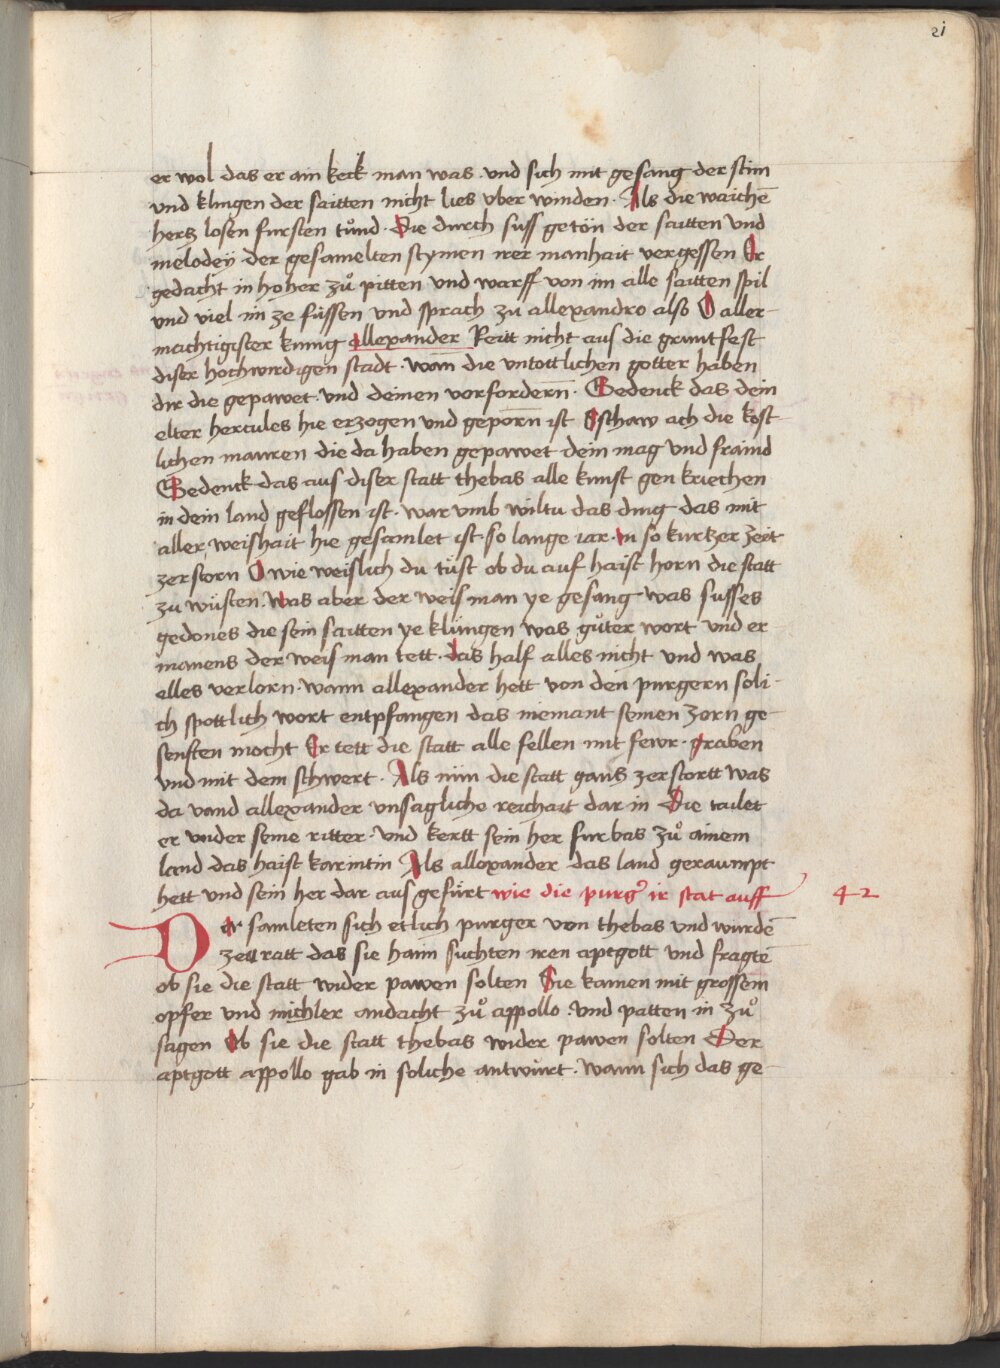 21
er wol das er ain keck man was und sich mit gesang der stim
und klingen der saitten nicht lies uber winden · Als die waichē
hertz losen fursten tůnd · Die durch suss getön der saitten und
melodeÿ der gesamelten stymen irer manhait vergessen Er
gedacht in hoher zů pitten und warff von im alle saitten spil
und viel im ze füssen und sprach zu allexandro also O aller-
machtigister kunig allexander Reitt nicht aus die gruntfest
diser hochwirdigen stadt · wan die untottlichen gotter haben
dir die gepawet · und deinen vorfordern̄ · Gedenck das dein
elter hercules hie erzogen und geporn̄ ist Eschaw ach die kost-
lichen mauren die da haben gepawet dein mag und fraind
Gedenck das aus diser statt thebas alle kunst gen kriechen
in dein land geflossen ist · war umb wiltu das ding das mit
aller weishait hie gesamlet ist · so lange iar · in so kurtzer zeit
zerstorn O wie weislich du tüst ob du auf haist horn die statt
zu wüsten · Was aber der weis man ye gesang was susses
gedones die sein saitten ye klungen was gůter wort und er
manens der weis man tett · das half alles nicht und was
alles verlorn · wann allexander hett von den purgern soli-
ch spottlich wort entpfangen das niemant seinen zorn ge-
senften mocht Er tett die statt alle fellen mit fewr · graben
und mit dem schwert · Als nün die statt gans zerstortt was
da vand allexander unsagliche reichait dar in Die tailet
er under seine ritter · und kertt sein her furbas zů ainem
land das haist karintin Als allexander das land geraumpt
hett und sein her dar aus gefürt wie die purg᾽ ir stat auff
42
Der samleten sich etlich purger von thebas und wurdē
ze ratt das sie haim suchten iren aptgott und fragtē
ob sie die statt wider pawen solten Sie kamen mit grossem
opfer und michler andacht zů appollo · und patten in zů
sagen Ob sie die statt thebas wider pawen solten Der
aptgott appollo gab in soliche antwürt · Wann sich das ge-